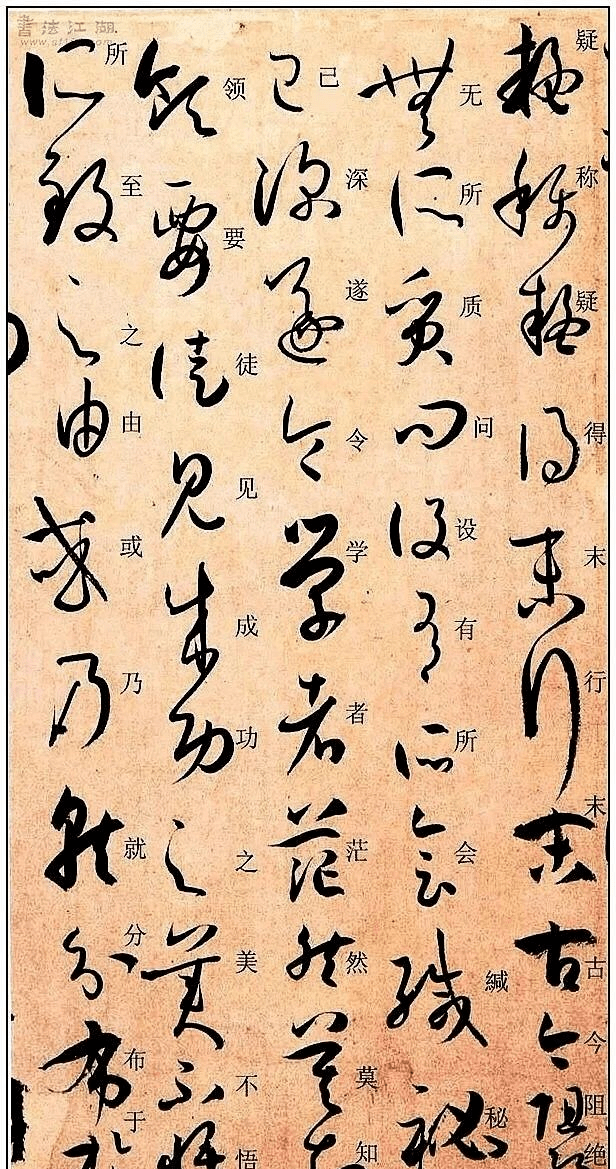 疑称疑得末行末古今阻绝
无所质问设有所会缄秘
已深遂令学者茫然莫知
领要徒见成功之美不悟
所至之由或乃就分布于
書法江湖